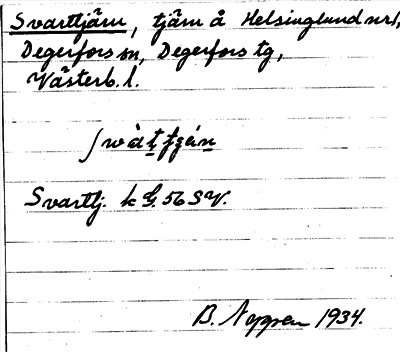 Svarttjärn, tjärn å Helsinglund nr 1,
Degerfors sn, Degerfors tg,
Västerb. l.
Svarttj. k G. 56 SV.
B. 1934.